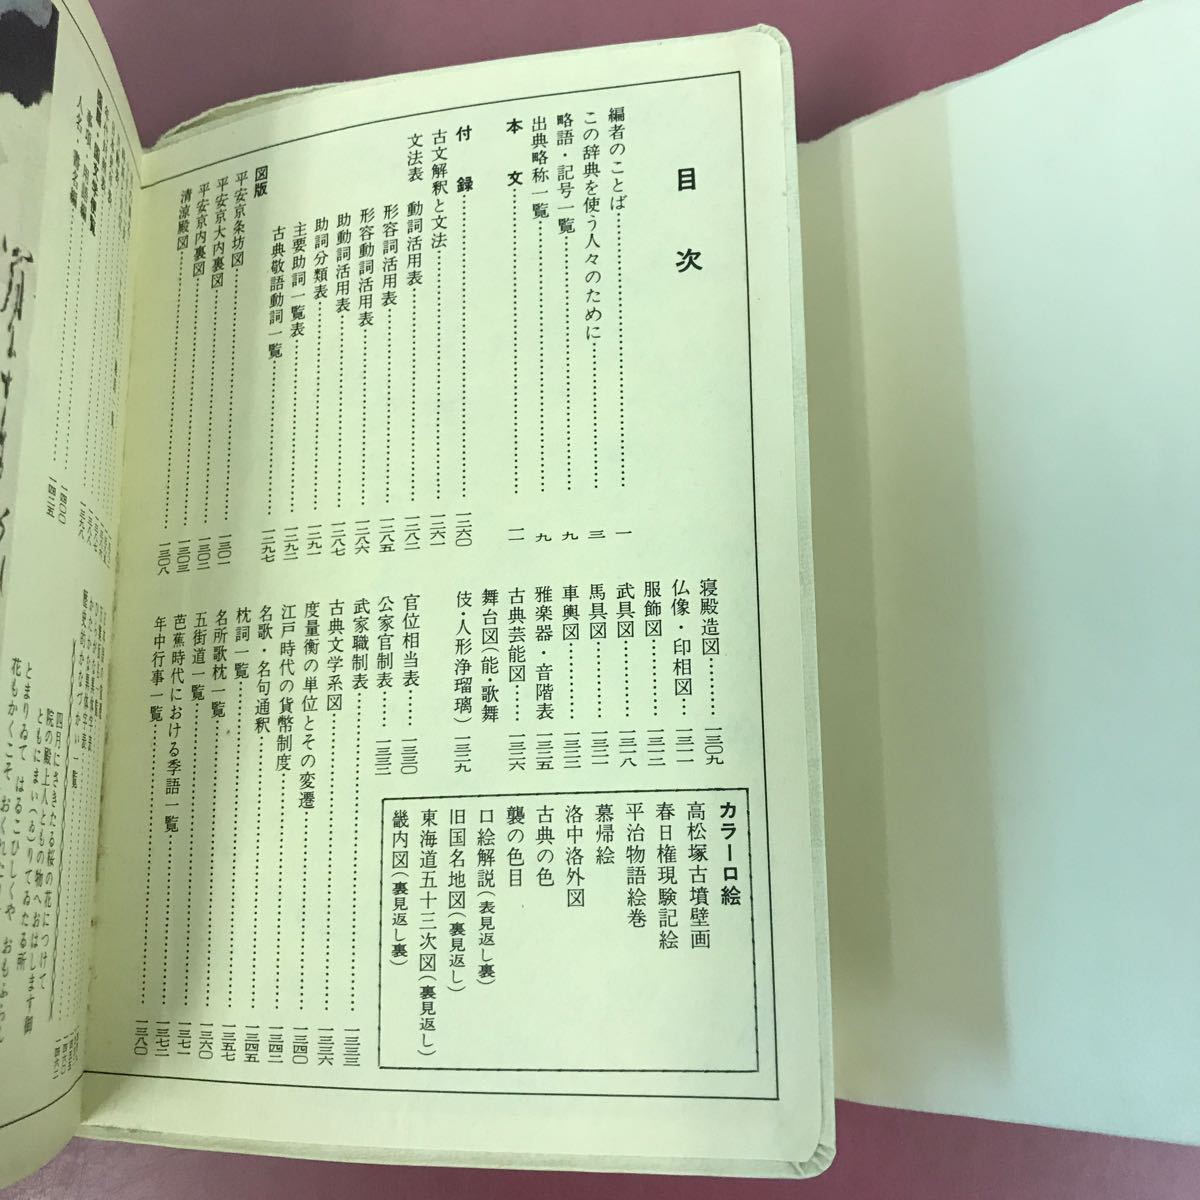 目次
編者のことば……一
この辞典を使う人々のために……三
略語・記号一覧……九
出典略称一覧……九
本文……一
付録……一二六〇
古文解釈と文法……一二六一
文法表 動詞活用表……一二八二
形容詞活用表……一二八五
形容動詞活用表……一二八六
助動詞活用表……一二八七
助詞分類表……一二九一
主要助詞一覧表……一二九二
古典敬語動詞一覧……一二九七
図版
平安京条坊図……一三〇一
平安京大内裏図……一三〇二
平安京内裏図……一三〇三
清涼殿図……一三〇八
寝殿造図……一三〇九
仏像・印相図……一三一一
服飾図……一三一二
武具図……一三一八
馬具図……一三二一
車輿図……一三二三
雅楽器・音階表……一三二五
古典芸能図……一三二六
舞台図(能・歌舞
伎・人形浄瑠璃)……一三二九
官位相当表……一三三〇
公家官制表……一三三二
武家職制表……一三三三
古典文学系図……一三三六
度量衡の単位とその変遷……一三四〇
江戸時代の貨幣制度……一三四二
名歌・名句通釈……一三四五
枕詞一覧……一三五七
名所歌枕一覧……一三六〇
五街道一覧……一三七一
芭蕉時代における季語一覧……一三七二
年中行事一覧……一三八〇
カラー口絵
高松塚古墳壁画
春日権現験記絵
平治物語絵巻
慕帰絵
洛中洛外図
古典の色
襲の色目
口絵解説(表見返し裏)
旧国名地図(裏見返し)
東海道五十三次図(裏見返し)
畿内図(裏見返し裏)
人名・書名編
歴史的かなづかい一覧
四月にさきたる桜の花につけて
院の殿上人ともの物へおはします御
ともにまい(ゐ)りてゐたる所
とまりゐて はるこひしくや おもふらん
花もかくこそ おくれたり